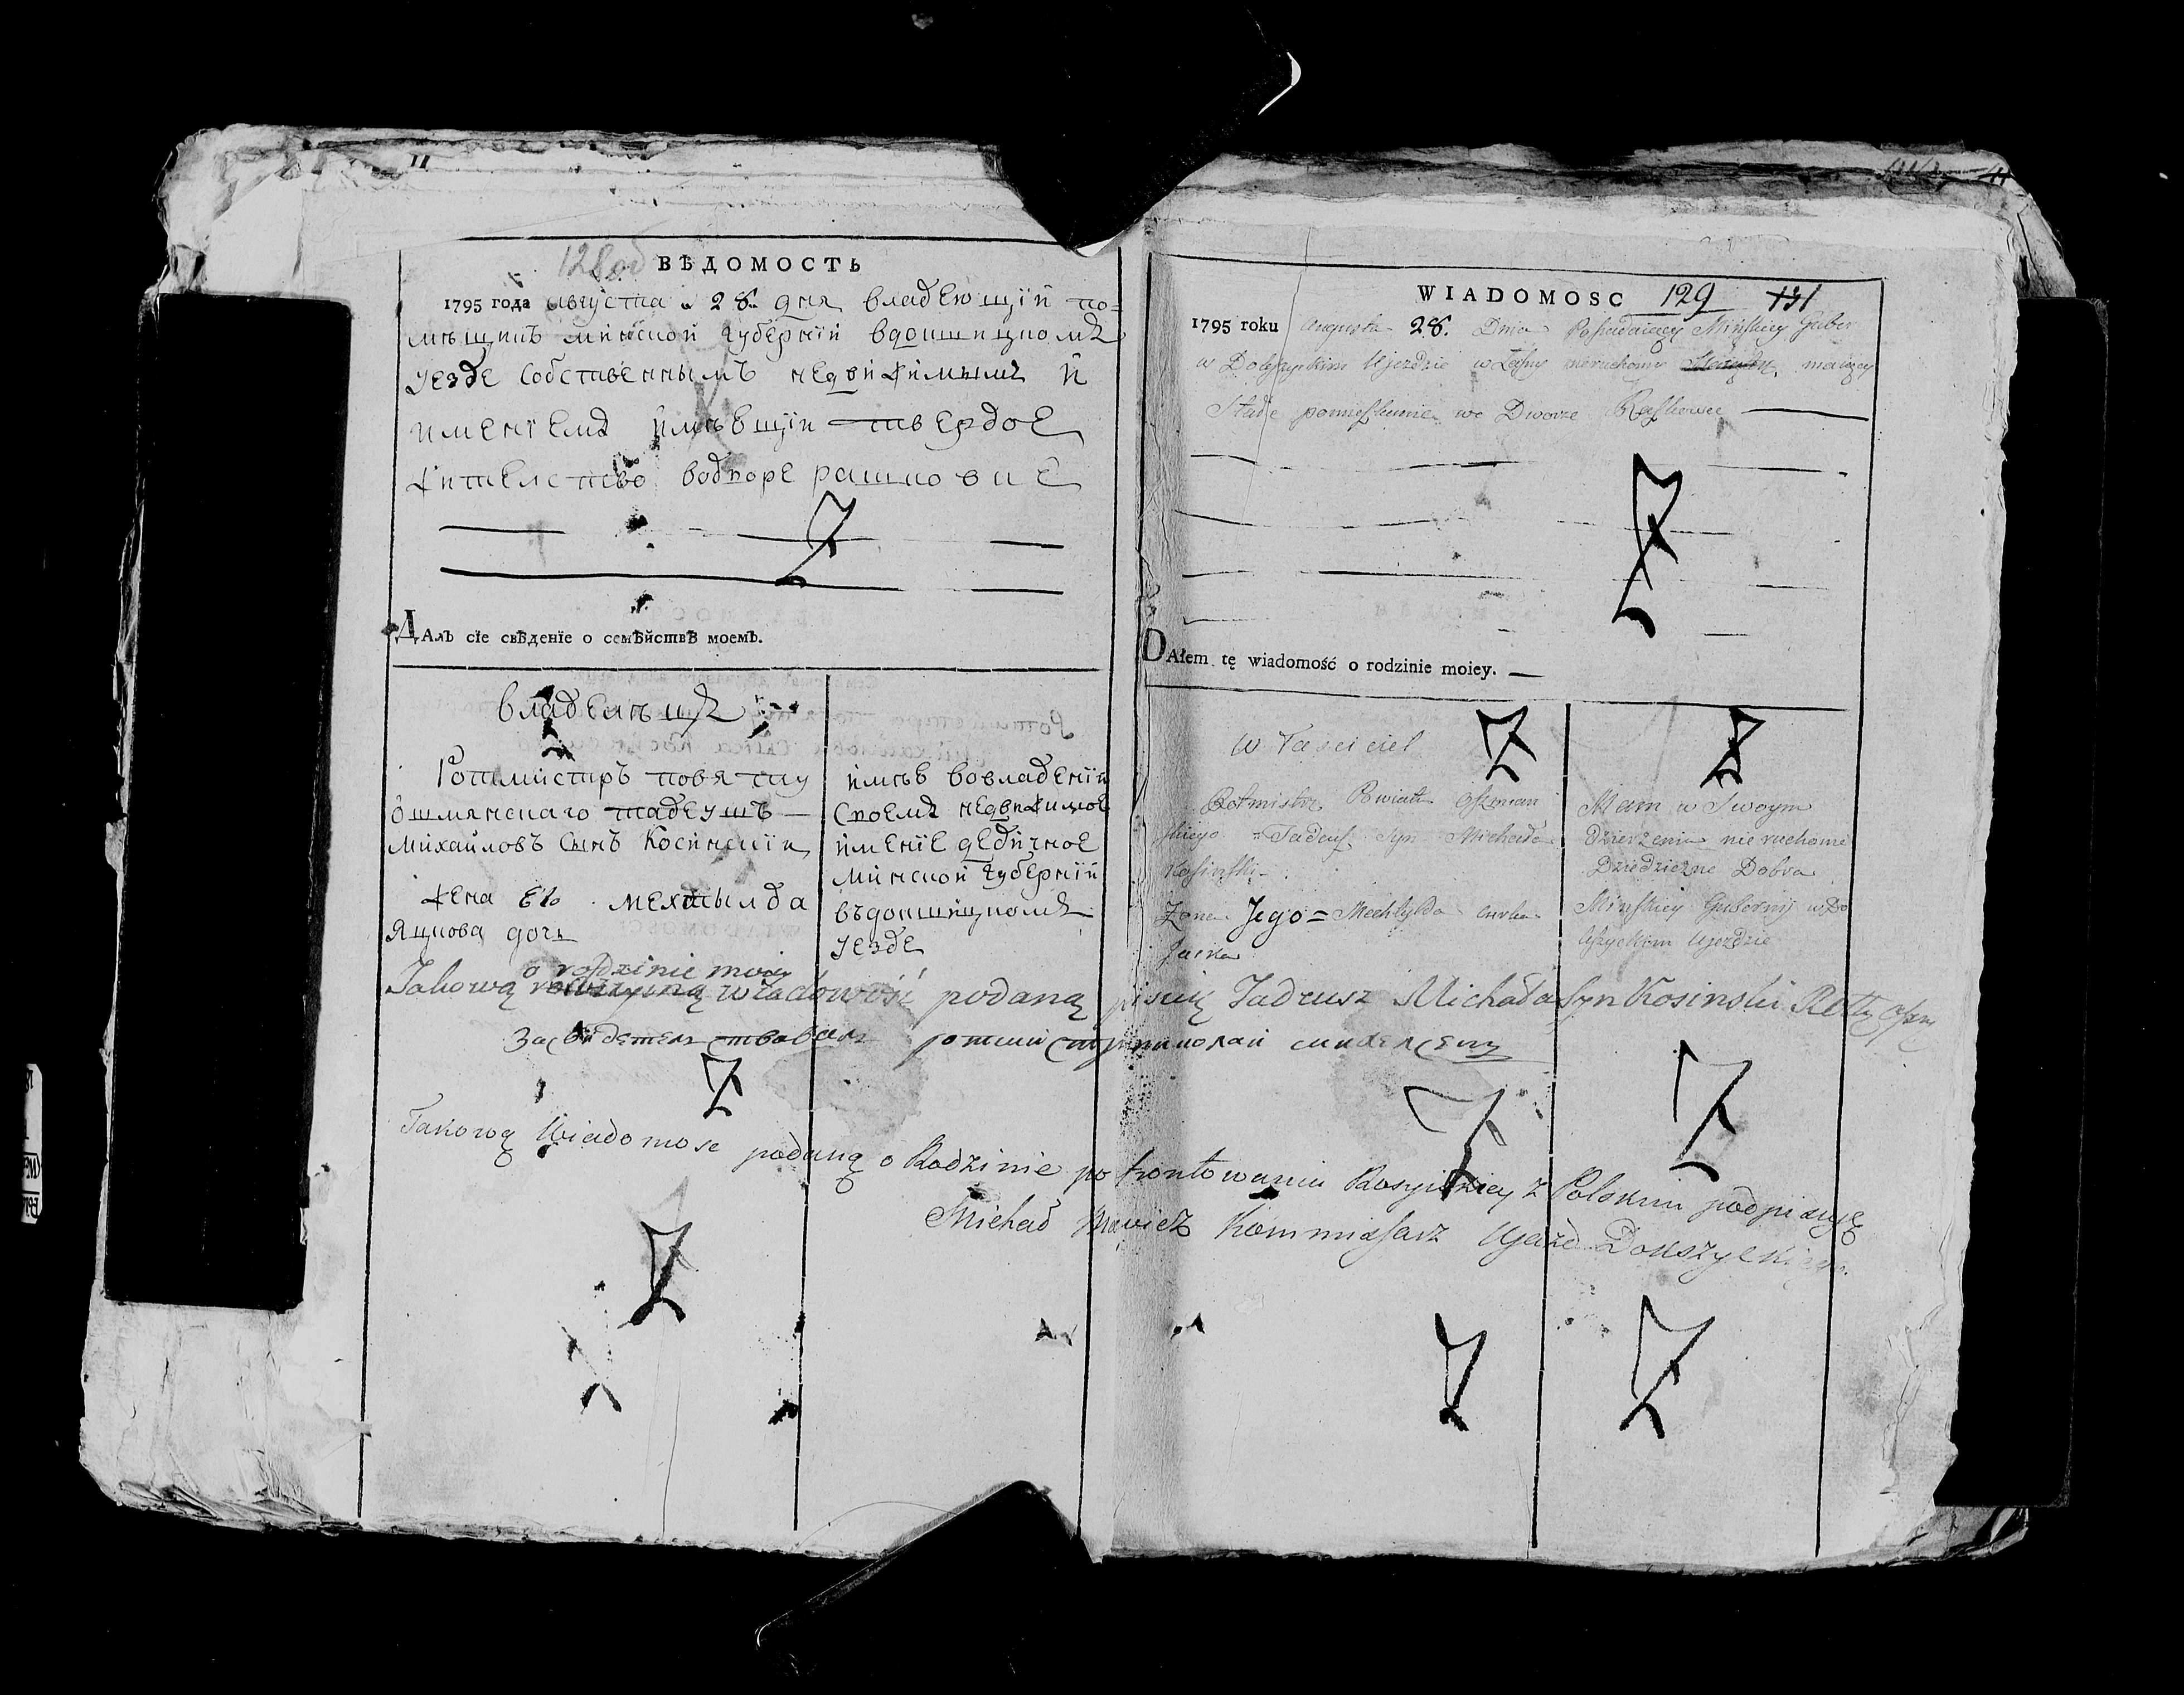 11
128об
ВѢДОМОСТЬ
1795 года августа 28. дня владеющїй по=
мѣщикъ минской губернїй вдокшицкомъ
уезде собственнымъ недвижимымъ й
йменїемъ ймѣвщїй твердое
жителство водворе рашковке
ДАлъ сїе свѣденїе о семѣйствѣ моемъ.
владелецъ
Ротмистръ повяту
ошмянскаго тадеушъ
михайловъ сынъ косинскїй
жена его мехтылда
яцкова дочь
ймѣю вовладенїй
своемъ недвижимое
йменїе дедичное
минской губернїй
въдокшицкомъ
уезде
WIADOMOSC 129
1795 roku Augusta 28. Dnia Possidaiący Mińskiey Guber
w Dokszyckim Ujezdzie własny nieruchomy maiący
Stałe pomeszkanie we Dworze Raszkowce
DAłem tę wiadomość o rodzinie moiey.
Własciciel
Rotmistrz Powiatu Oszmian
skiego = Tadeusz Syn Michała
Kosinski
Zona Jego = Mechtylda curka
Jacka
Mam w Swoym
Dzierżeniu nieruchome
Dziedziczne Dobra
Minskiey Gubernij w Do
kszyckim Ujezdzie
o rodzinie moiej
Takową wiadowość podaną pisuię Tadeusz Michała Syn Kosinski Rotm Oszm
Засвидетельствовалъ ротмистръ николай
Takową Wiadomosc podaną o Rodzinie po frontowaniu Rosyiskiey z Polskim podpisuję
Michał Kommissarz Ujazd Dokszyckiem.